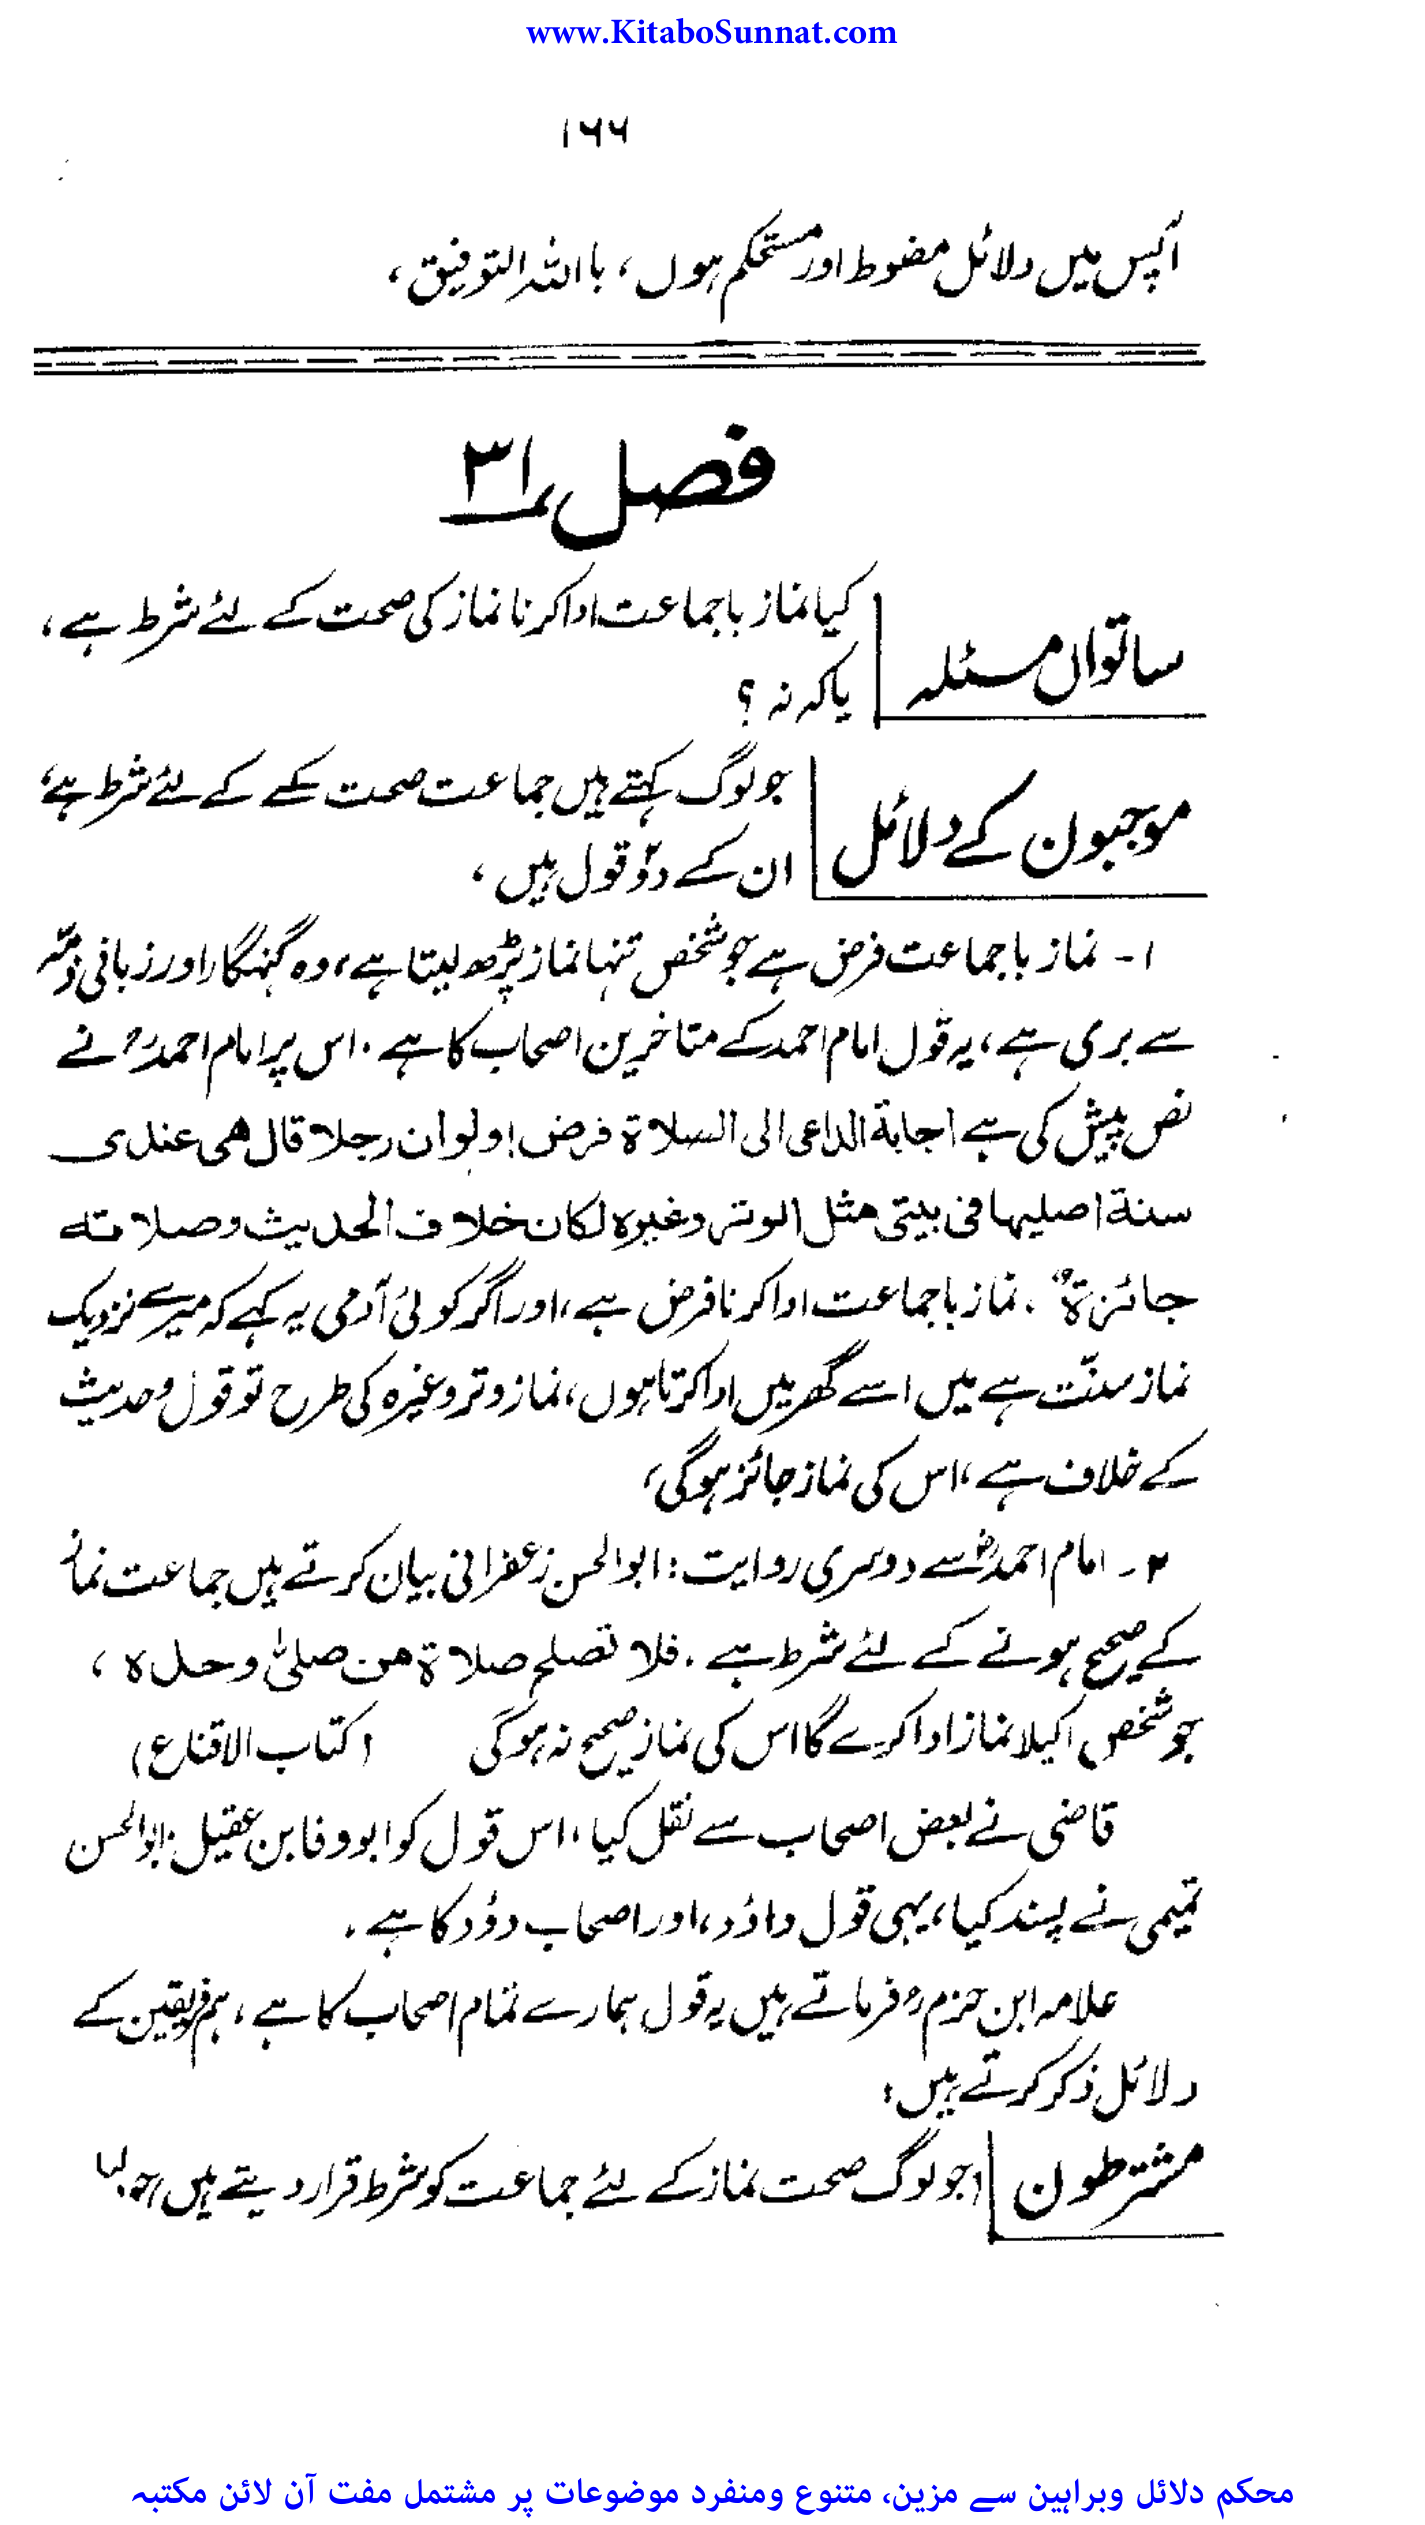 www.KitaboSunnat.com
۱۶۶
آپس میں دلائل مضبوط اور مستحکم ہوں، بااللہ التوفیق،
فصل ۳۱
ساتواں مسئلہ
کیا نماز باجماعت ادا کرنا نماز کی صحت کے لئے شرط ہے،
یا کہ نہ ؟
موجبون کے دلائل
جو لوگ کہتے ہیں جماعت صحت کے کے لئے شرط ہے،
ان کے دو قول ہیں،
۱۔ نماز باجماعت فرض ہے جو شخص تنہا نماز پڑھ لیتا ہے، وہ گنہگار اور زبانی ذمّہ
سے بری ہے، یہ قول امام احمد کے متاخرین اصحاب کا ہے۔ اس پر امام احمدؒ نے
نص پیش کی ہے اجابة الداعی الی السلاة فرض! ولو ان رجلا قال هی عندی
سنة اصلیها فی بیتی مثل الوتر وغیره لکان خلاف الحدیث وصلاته
جائزة۔ نماز باجماعت ادا کرنا فرض ہے، اور اگر کوئی آدمی یہ کہے کہ میرے نزدیک
نماز سنّت ہے میں اسے گھر میں ادا کرتا ہوں، نماز وتر وغیرہ کی طرح تو قول و حدیث
کے خلاف ہے، اس کی نماز جائز ہوگی،
۲۔ امام احمدؒ سے دوسری روایت: ابوالحسن زعفرانی بیان کرتے ہیں جماعت نماز
کے صحیح ہونے کے لئے شرط ہے۔ فلا تصلح صلاة من صلیٰ وحده ،
جو شخص اکیلا نماز ادا کرے گا اس کی نماز صحیح نہ ہوگی (کتاب الاقناع)
قاضی نے بعض اصحاب سے نقل کیا، اس قول کو ابو وفا بن عقیل: ابوالحسن
تمیمی نے پسند کیا، یہی قول داؤد، اور اصحاب دوُد کا ہے۔
علامہ ابن حزمؒ فرماتے ہیں یہ قول ہمارے تمام اصحاب کا ہے، ہم فریقین کے
دلائل ذکر کرتے ہیں،
مشترطون
جو لوگ صحت نماز کے لئے جماعت کو شرط قرار دیتے ہیں
محکم دلائل وبراہین سے مزین، متنوع ومنفرد موضوعات پر مشتمل مفت آن لائن مکتبہ